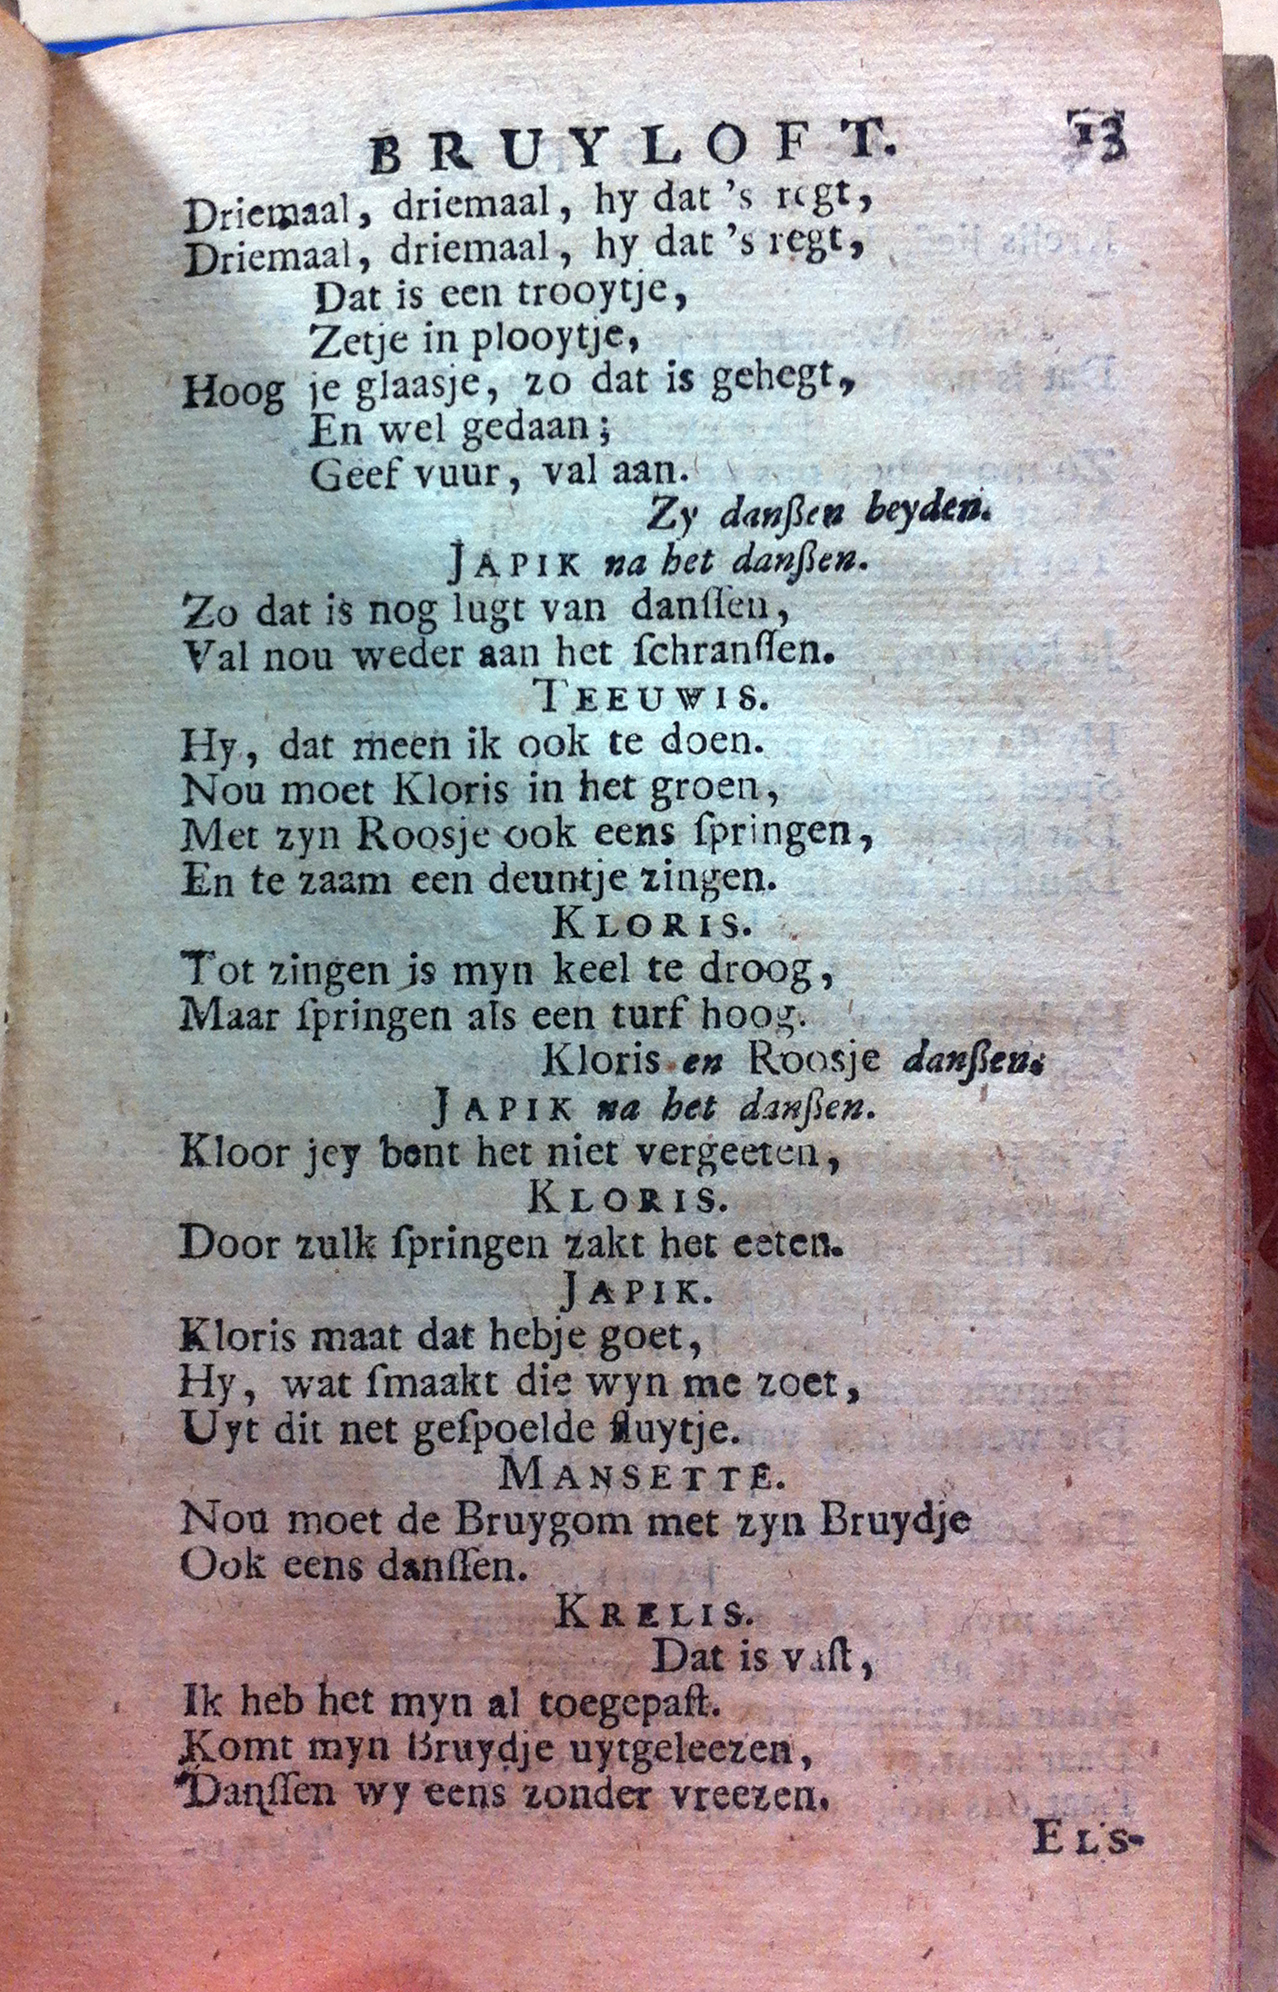 BRUYLOFT. 13
Driemaal, driemaal, hy dat 's regt,
Driemaal, driemaal, hy dat 's regt,
Dat is een trooytje,
Zetje in plooytje,
Hoog je glaasje, zo dat is gehegt,
En wel gedaan;
Geef vuur, val aan.
Zy danſſen beyden.
JAPIK na het danſſen.
Zo dat is nog lugt van danſſen,
Val nou weder aan het ſchranſſen.
TEEUWIS.
Hy, dat meen ik ook te doen.
Nou moet Kloris in het groen,
Met zyn Roosje ook eens ſpringen,
En te zaam een deuntje zingen.
KLORIS.
Tot zingen is myn keel te droog,
Maar ſpringen als een turf hoog.
Kloris en Roosje danſſen.
JAPIK na het danſſen.
Kloor jey bent het niet vergeeten,
KLORIS.
Door zulk ſpringen zakt het eeten.
JAPIK.
Kloris maat dat hebje goet,
Hy, wat ſmaakt die wyn me zoet,
Uyt dit net geſpoelde fluytje.
MANSETTE.
Nou moet de Bruygom met zyn Bruydje
Ook eens danſſen.
KRELIS.
Dat is vaſt,
Ik heb het myn al toegepaſt.
Komt myn Bruydje uytgeleezen,
Danſſen wy eens zonder vreezen.
ELS-